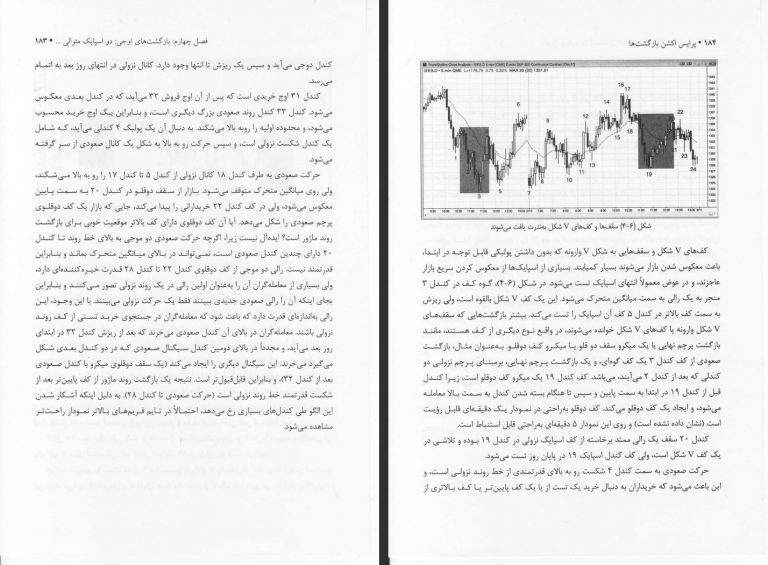 ۱۸۴ • پرایس اکشن بازگشت‌ها
شکل (۶-۴) سقف‌ها و کف‌های V شکل به‌ندرت یافت می‌شوند
کف‌های V شکل و سقف‌هایی به شکل V وارونه که بدون داشتن پولبکی قابل توجه در ابتدا،
باعث معکوس شدن بازار می‌شوند بسیار کمیابند. بسیاری از اسپایک‌ها از معکوس کردن سریع بازار
عاجزند، و در عوض معمولاً انتهای اسپایک تست می‌شود. در شکل (۶-۴)، گوه کف در کندل ۳
منجر به یک رالی به سمت میانگین متحرک می‌شود. این یک کف V شکل بالقوه است، ولی ریزش
به سمت کف بالاتر در کندل ۵ کف آن اسپایک را تست می‌کند. بیشتر بازگشت‌هایی که سقف‌های
V شکل وارونه یا کف‌های V شکل خوانده می‌شوند، در واقع نوع دیگری از کف هستند، مانند
بازگشت پرچم نهایی یا یک میکرو سقف دو قلو یا میکرو کف دوقلو. به‌عنوان مثال، بازگشت
صعودی از کف کندل ۳ یک کف گوه‌ای، و یک بازگشت پرچم نهایی، برمبنای پرچم نزولی دو
کندلی که بعد از کندل ۲ می‌آیند، می‌باشد. کف کندل ۱۹ یک میکرو کف دوقلو است، زیرا کندل
قبل از کندل ۱۹ در ابتدا به سمت پایین و سپس تا هنگام بسته شدن کندل به سمت بالا معامله
می‌شود، و ایجاد یک کف دوقلو می‌کند. کف دوقلو به‌راحتی در نمودار یک دقیقه‌ای قابل رؤیت
است (نشان داده نشده است) و روی این نمودار ۵ دقیقه‌ای به‌راحتی قابل استنباط است.
کندل ۲۰ سقف یک رالی ممتد برخاسته از کف اسپایک نزولی در کندل ۱۹ بوده و تلاشی در
یک کف V شکل است، ولی کف کندل اسپایک ۱۹ در پایان روز تست می‌شود.
حرکت صعودی به سمت کندل ۴ شکست رو به بالای قدرتمندی از خط روند نزولی است، و
این باعث می‌شود که خریداران به دنبال خرید یک تست از یا یک کف پایین‌تر یا کف بالاتری از
فصل چهارم: بازگشت‌های اوجی: دو اسپایک متوالی ... • ۱۸۳
کندل دوجی می‌آید و سپس یک ریزش تا انتها وجود دارد. کانال نزولی در انتهای روز بعد به اتمام
می‌رسد.
کندل ۳۱ اوج خریدی است که پس از آن اوج فروش ۳۲ می‌آید، که در کندل بعدی معکوس
می‌شود. کندل ۳۳ کندل روند صعودی بزرگ دیگری است، و بنابراین یک اوج خرید محسوب
می‌شود، و محدوده اولیه را روبه بالا می‌شکند. به دنبال آن یک پولبک ۴ کندلی می‌آید، که شامل
یک کندل شکست نزولی است، و سپس حرکت رو به بالا به شکل یک کانال صعودی از سر گرفته
می‌شود.
حرکت صعودی به طرف کندل ۱۸ کانال نزولی از کندل ۵ تا کندل ۱۷ را رو به بالا می‌شکند،
ولی روی میانگین متحرک متوقف می‌شود. بازار از سقف دوقلو در کندل ۲۰ به سمت پایین
معکوس می‌شود، ولی در کف کندل ۲۲ خریدارانی را پیدا می‌کند، جایی که بازار یک کف دوقلوی
پرچم صعودی را شکل می‌دهد. آیا آن کف دوقلوی دارای کف بالاتر موقعیت خوبی برای بازگشت
روند ماژور است؟ ایده‌آل نیست زیرا، اگرچه حرکت صعودی دو موجی به بالای خط روند تا کندل
۲۰ دارای چندین کندل صعودی است، نمی‌تواند در بالای میانگین متحرک بماند و بنابراین
قدرتمند نیست. رالی دو موجی از کف دوقلوی کندل ۲۲ تا کندل ۲۸ قدرت خیره‌کننده‌ای دارد،
ولی بسیاری از معامله‌گران آن را به‌عنوان اولین رالی در یک روند نزولی تصور می‌کنند و بنابراین
بجای اینکه آن را رالی صعودی جدیدی ببینند فقط یک حرکت نزولی می‌بینند. با این وجود، این
رالی به‌اندازه‌ای قدرت دارد که باعث شود که معامله‌گران در جستجوی خرید تستی از کف روند
نزولی باشند. معامله‌گران در بالای آن کندل صعودی می‌خرند که بعد از ریزش کندل ۳۲ در ابتدای
روز بعد می‌آید، و مجدداً در بالای دومین کندل سیگنال صعودی که در دو کندل بعدی شکل
می‌گیرد می‌خرند. این سیگنال دیگری را ایجاد می‌کند (یک سقف دوقلوی میکرو با کندل صعودی
بعد از کندل ۳۲)، و بنابراین قابل‌قبول‌تر است. نتیجه یک بازگشت روند ماژور از کف پایین‌تر بعد از
شکست قدرتمند خط روند نزولی است (حرکت صعودی تا کندل ۲۸). به دلیل اینکه آشکار شدن
این الگو طی کندل‌های بسیاری رخ می‌دهد، احتمالاً در تایم فریم‌های بالاتر نمودار راحت‌تر
مشاهده می‌شود.